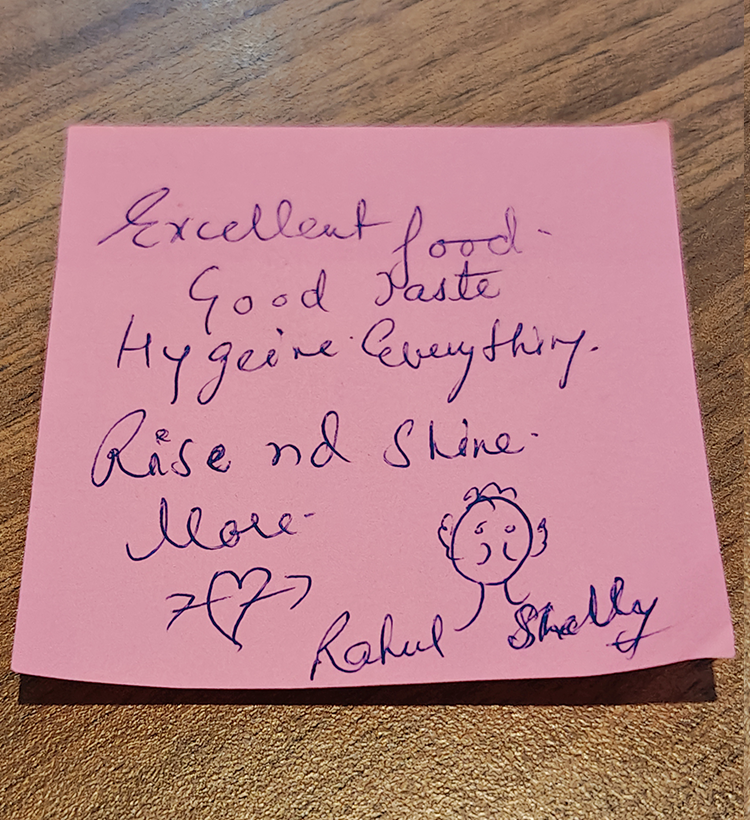 Excellent food.
Good taste
Hygeine Everything.
Rise nd Shine.
More.
Rahul Shelly